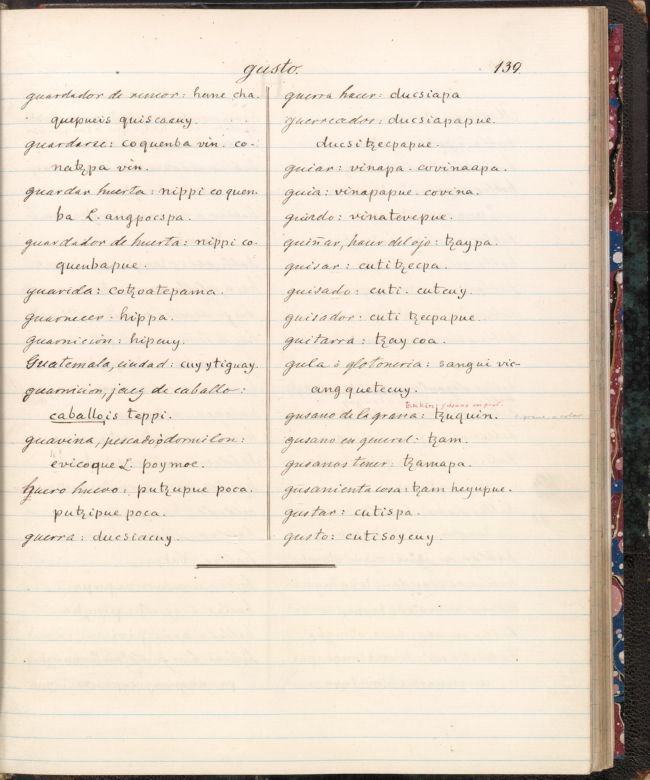 gusto.
139.
guardador de rencor: hane cha.
quepueis quiscacuy.
guardarse: coquenba vin. co-
natzpa vin.
guardar huerta: nippi coquen.
ba L. angpocspa.
guardador de huerta: nippi co-
quenbapue.
guarida: cotzoatepama.
guarnecer. hippa.
guarnicion: hipcuy.
Guatemala, ciudad: cuyytiguay.
guarnicion, jaez de caballo:
caballois teppi.
guavina, pescado ó dormilon:
evicoque L. poymoc.
huero huevo: putzupue poca.
putzipue poca.
guerra: ducsiacuy.
guerra hacer: ducsiapa
guerreador: ducsiapapue.
ducsitzecpapue.
guiar: vinapa. covinaapa.
guia: vinapapue. covina.
guiado: vinatevepue.
guiñar, hacer del ojo: tzaypa.
guisar: cutitzecpa.
guisado: cuti. cutcuy.
guisador: cuti tzecpapue.
guitarra: tzaycoa.
gula ó glotoneria: sangui vic-
angquetecuy.
gusano de la grana: tzuquin.
gusano en general: tzam.
gusanos tener: tzamapa.
gusanienta cosa: tzam heyupue.
gustar: cutispa.
gusto: cutisoycuy.